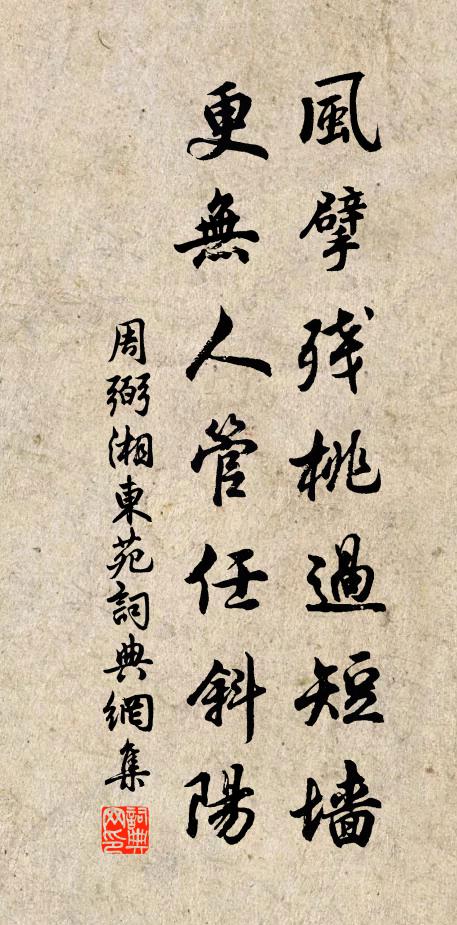 風擘殘桃過短墻
更無人管任斜陽
周弼湘東苑詞典網集
詞典網印